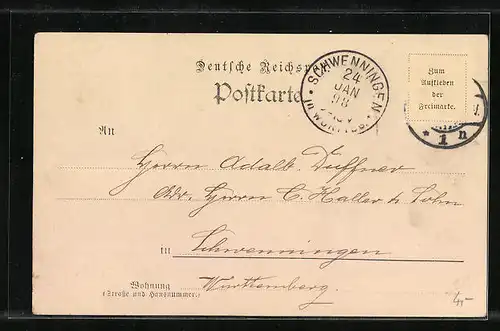 Deutsche Reichs
Postkarte
SCHWENNINGEN
24
JAN
98
Zum
Aufkleben
der
Freimarke.
* 1 n
An
Herrn Adalb. Duffner
Adr. Herrn C. Haller & Sohn
in Schwenningen
Wohnung Württemberg.
(Straße und Hausnummer.)
4,-